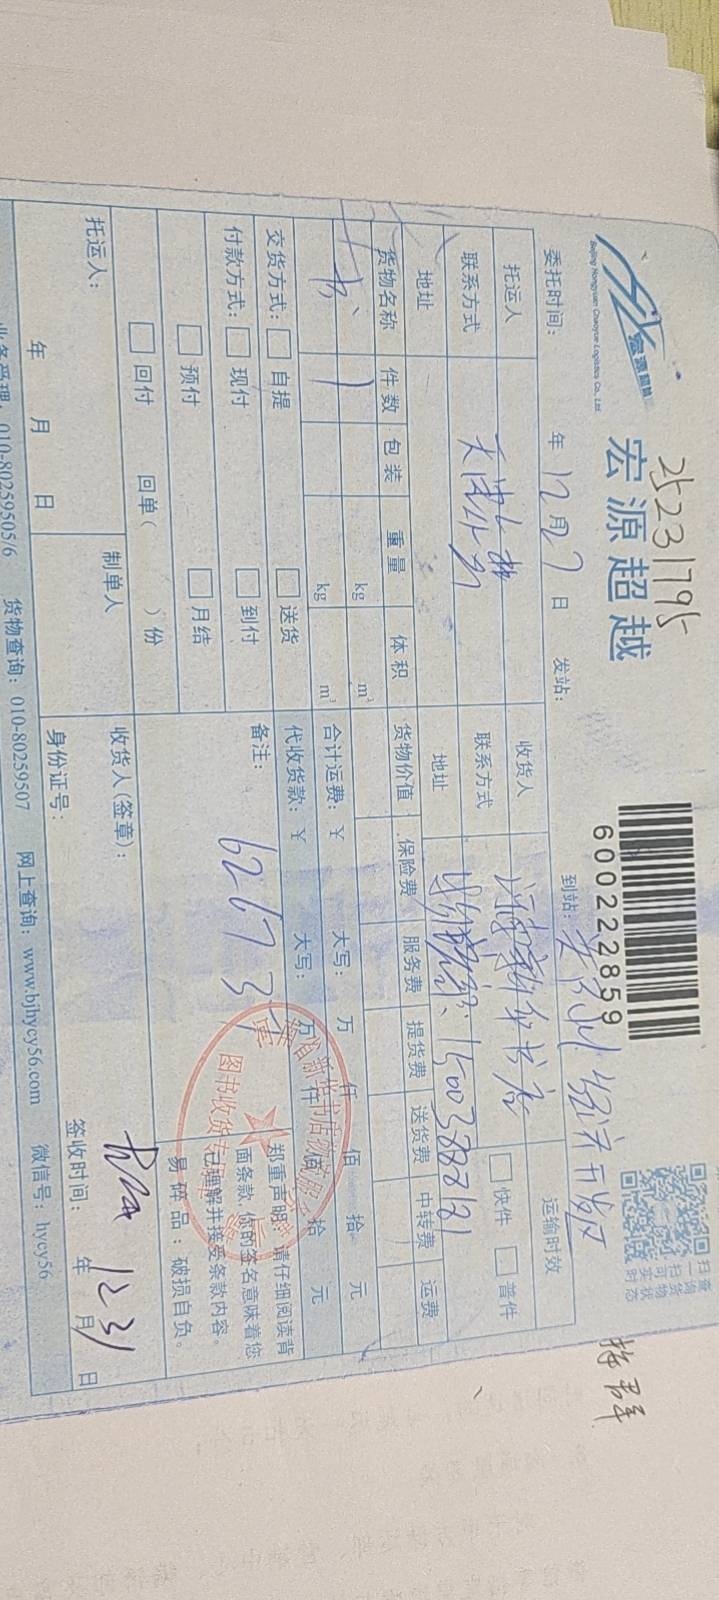 25231795
宏源超越
宏源超越
Beijing Hongyuan Chaoyue Logistics Co., Ltd.
600222859
扫一扫可实时
查询货物状态
委托时间: 年 12 月 27 日 发站: 到站: 经济开发区
托运人 收货人 新华书店 运输时效
联系方式 天津 联系方式 15003882121 快件 普件
地址 地址
货物名称 件数 包装 重量 体积 货物价值 保险费 服务费 提货费 送货费 中转费 运费
书 1 kg m³
kg m³ 合计运费: ¥ 大写: 万 仟 佰 拾 元
交货方式: 自提 送货 代收货款: ¥ 大写: 万 仟 佰 拾 元
付款方式: 现付 到付 备注: 6267 3
预付 月结
回付 回单( )份
郑重声明: 请仔细阅读背
面条款,你的签名意味着您
已理解并接受条款内容。
易碎品:破损自负。
新华书店物流
图书收货专用
托运人: 制单人 收货人(签章):
年 月 日 身份证号: 签收时间: 年 月 日
12 31
业务受理: 010-80259505/6 货物查询: 010-80259507 网上查询: www.bjhycy56.com 微信号: hycy56